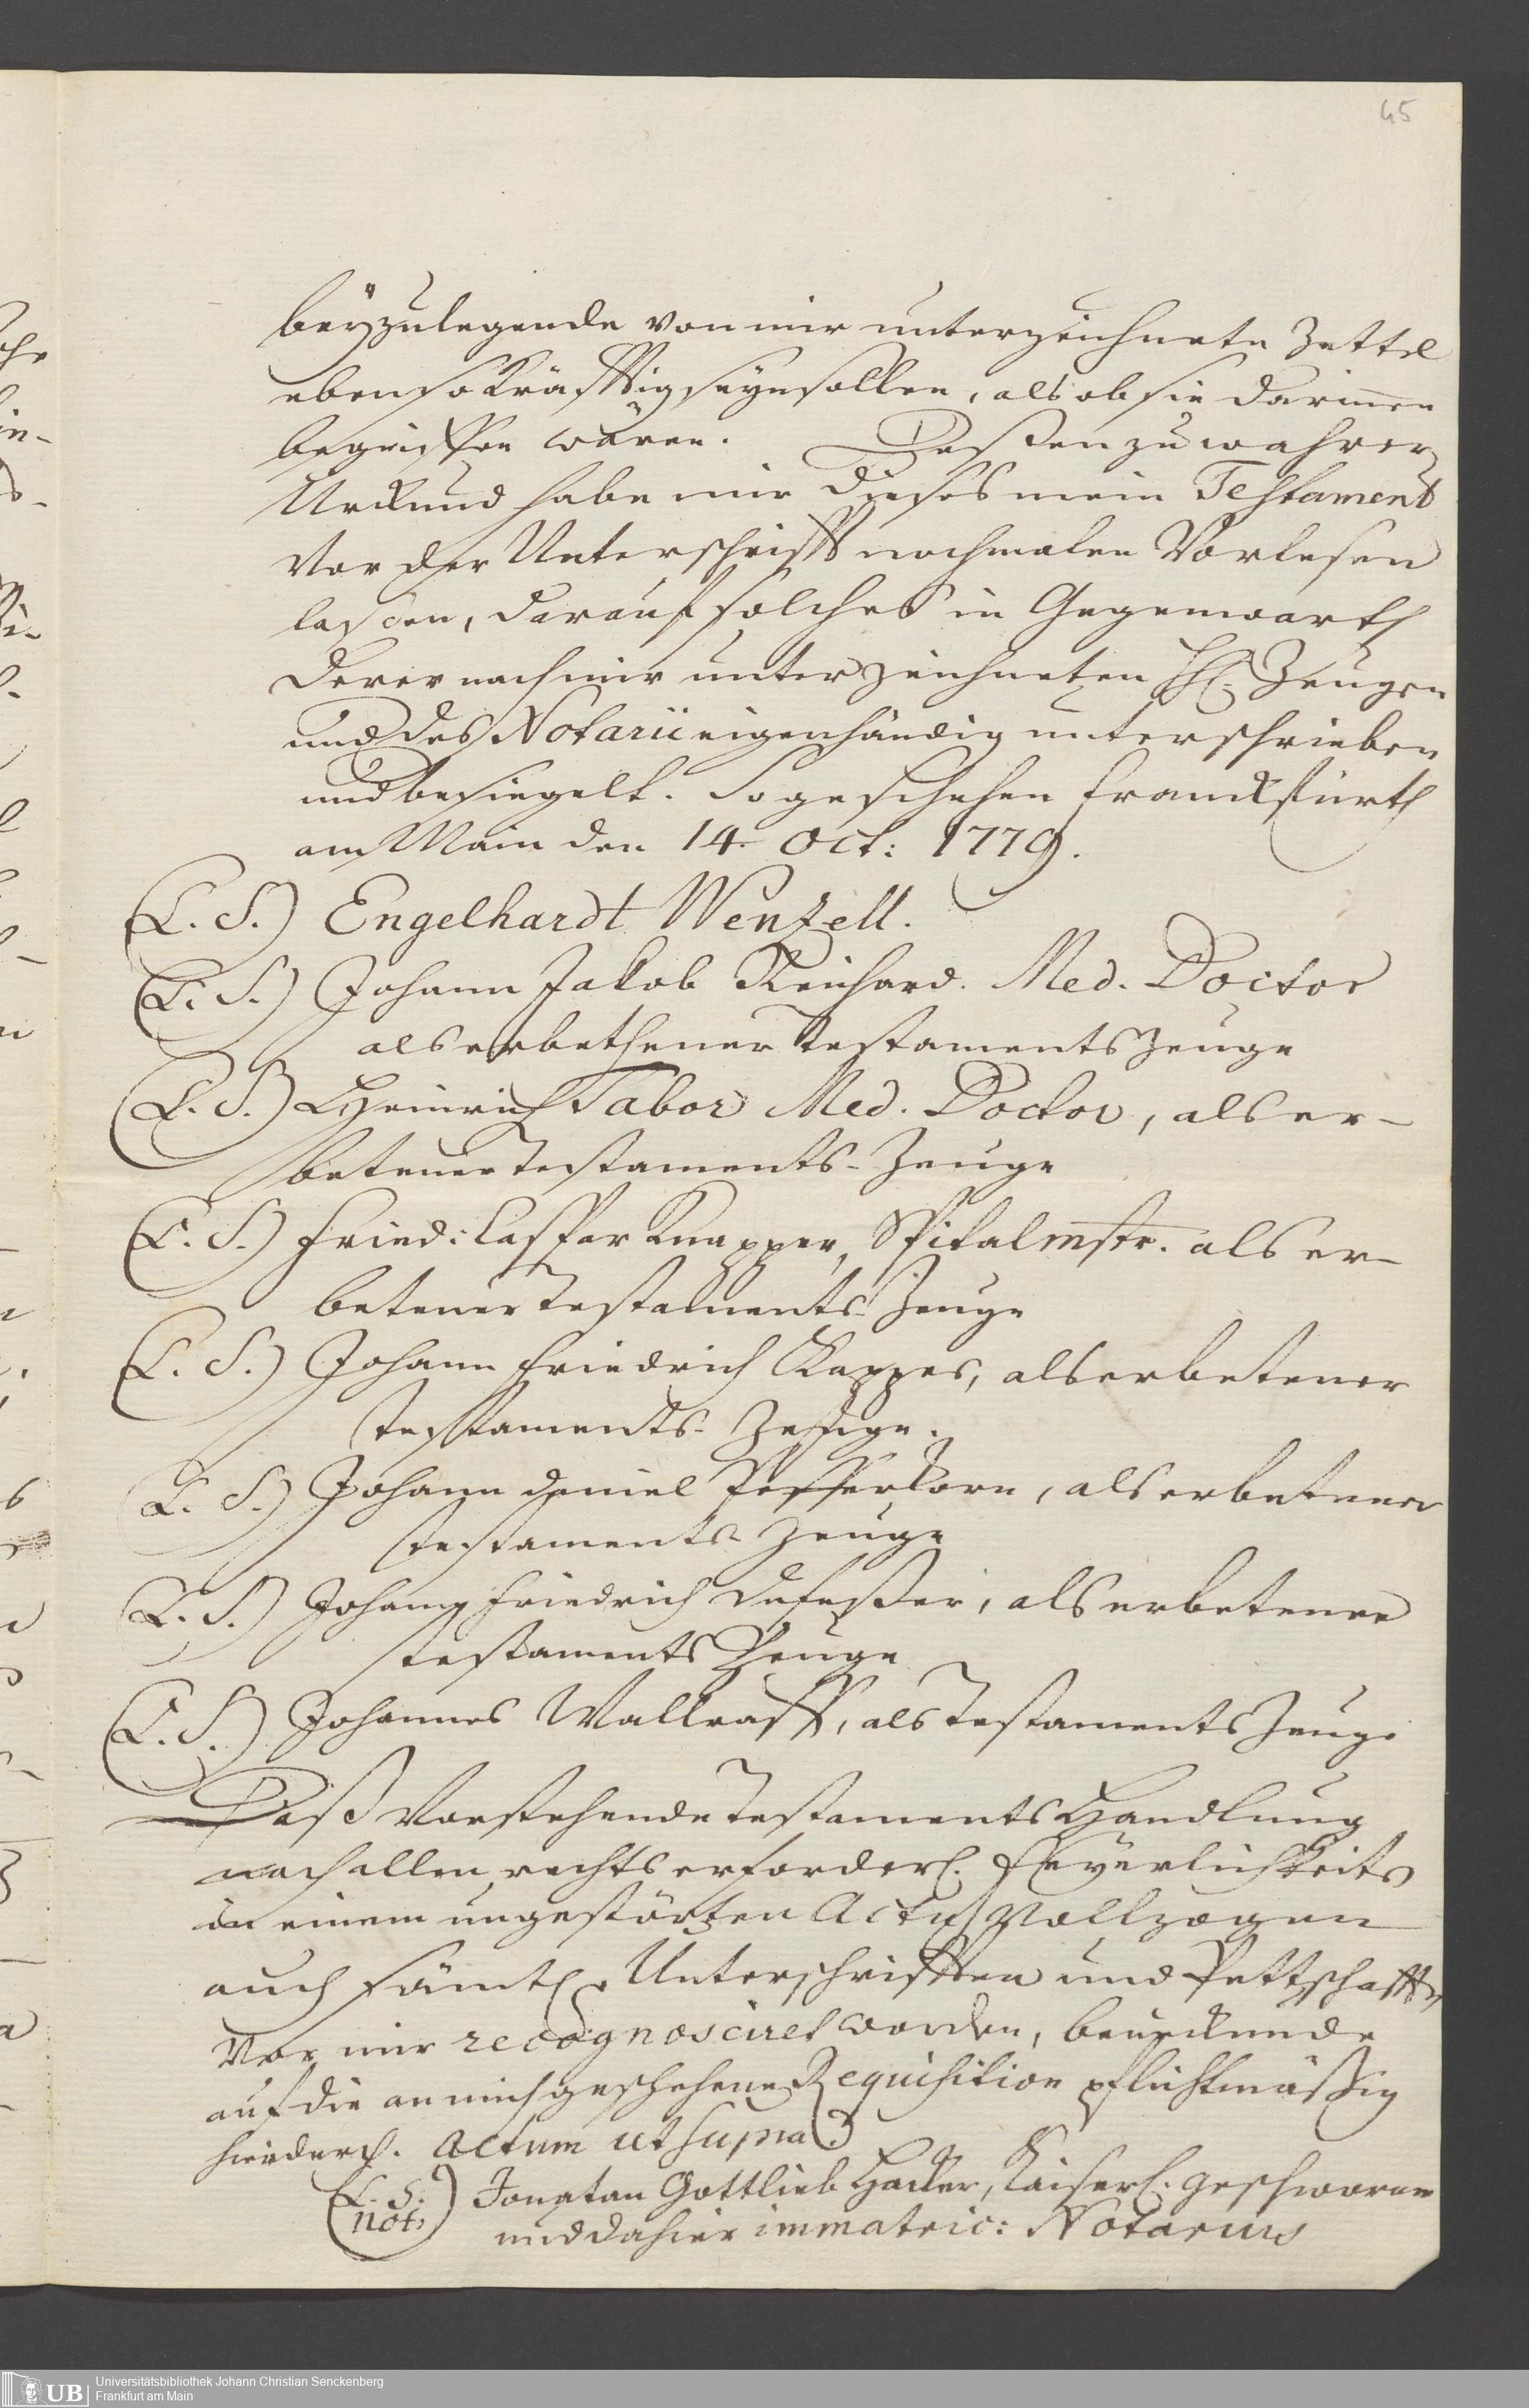 45
beyzulegende von mir unterzeichnete Zettel
eben so kräfftig seyn sollen, als ob sie darinnen
begriffen wären. Dessen zu wahrer
Urkund habe mir dieses mein Testament
vor der Unterschrifft nochmalen Vorlesen
lassen, darauf solches in Gegenwarth
derer nach mir unterzeichneten HH. Zeugen
und des Notarii eigenhändig unterschrieben
und besiegelt. So geschehen Franckfurth
am Main den 14. Oct: 1779.
(L. S.) Engelhardt Wenzell.
(L. S.) Johann Jakob Reichard. Med. Doctor
als erbethener Testaments Zeuge
(L. S.) Heinrich Tabor Med. Doctor, als er-
betener Testaments-Zeuge
(L. S.) Fried: Caspar Knapper, Spitalmstr. als er-
betener Testaments Zeuge
(L. S.) Johann Friedrich Kappes, als erbetener
Testaments-Zeuge.
(L. S.) Johann Daniel Pfefferkorn, als erbetener
Testaments Zeuge
(L. S.) Johann Friedrich, als erbetener
Testaments Zeuge
(L. S.) Johannes Wallraff, als Testaments Zeuge
Daß Vorstehende Testaments Handlung
nach allen rechtserforderl. Feyerlichkeits
in einem ungestörten Actu vollzogen
auch sämtl. Unterschrifften und Pettschafft,
Vor mir recognosciret worden, beurkunde
auf die an mich geschehene Requisition pflichtmäßig
hierdurch. Actum ut supra.
(L. S. Not:) Jonatan Gottlieb Hacker, Kaiserl. geschworner
und dahier immatric: Notarius
UB Universitätsbibliothek Johann Christian Senckenberg
Frankfurt am Main